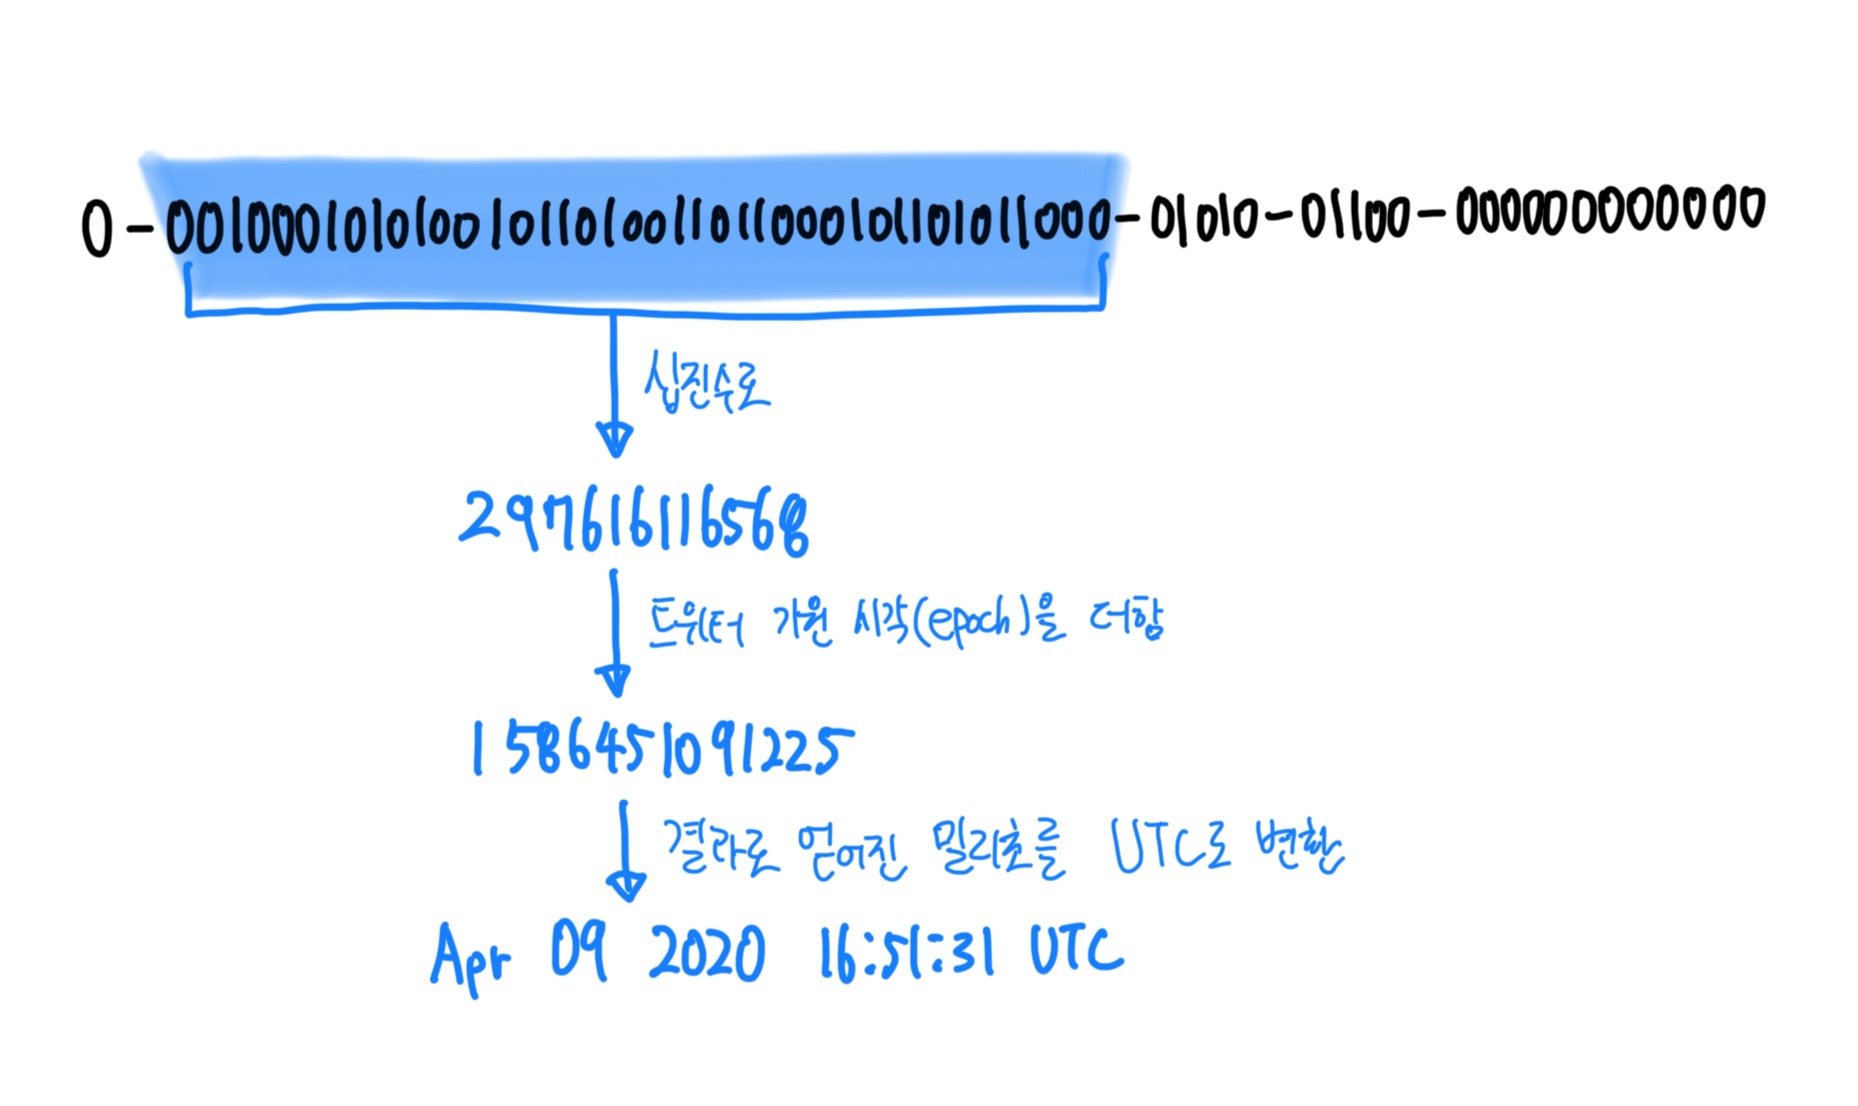 0-00100010101001011010011011000101101011000-01010-01100-000000000000
십진수로
297616116568
트위터 기원 시각(epoch)을 더함
1586451091225
결과로 얻어진 밀리초를 UTC로 변환
Apr 09 2020 16:51:31 UTC